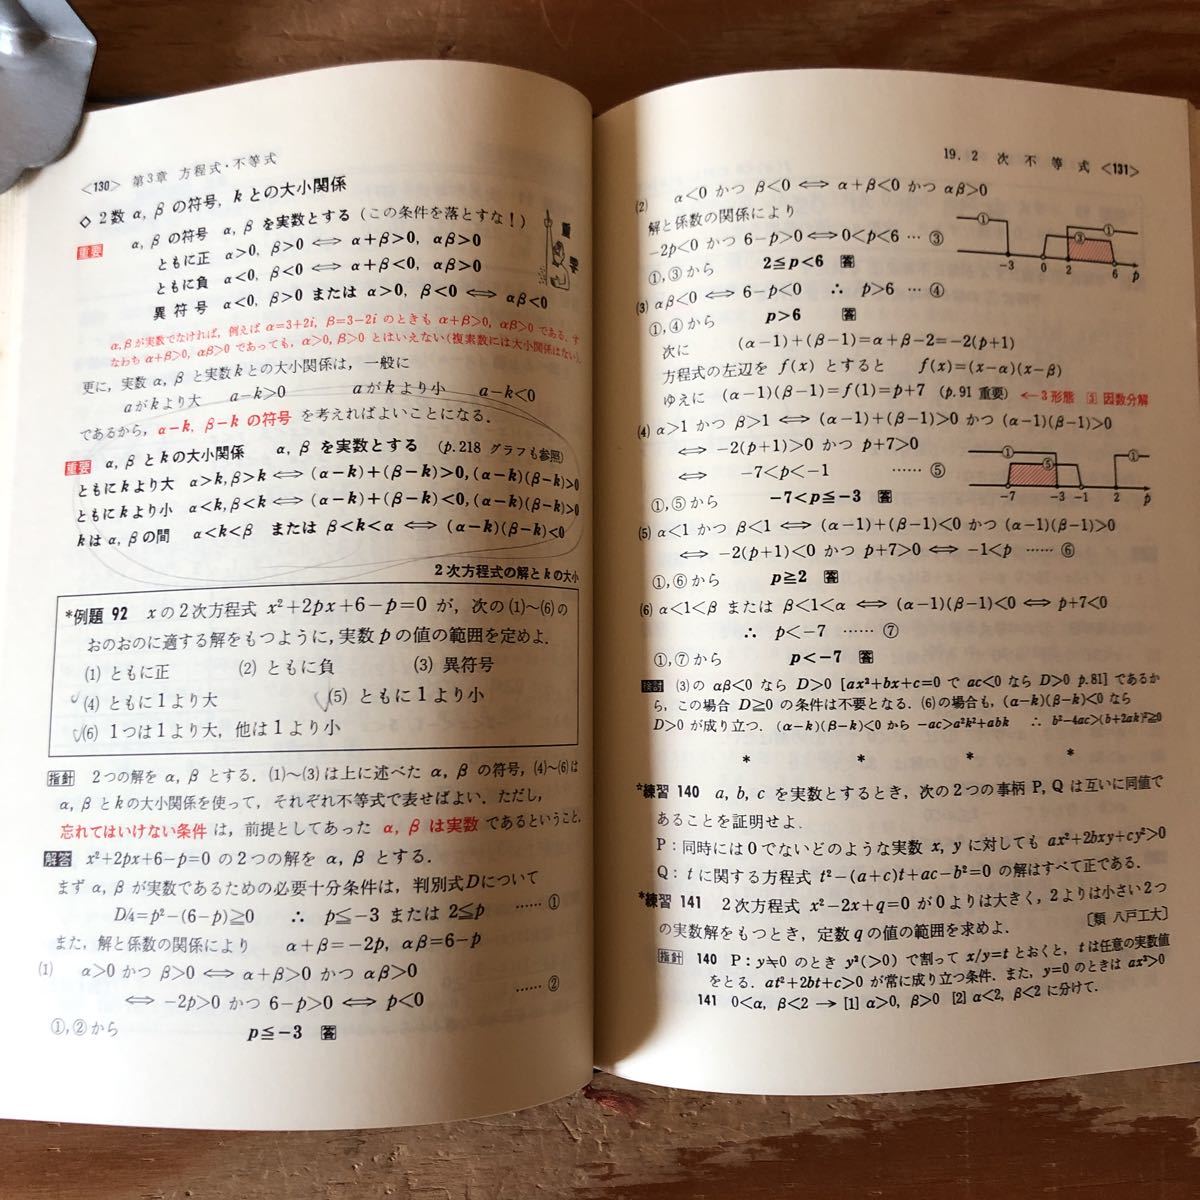 <130> 第3章 方程式・不等式
◇ 2数 α, β の符号, k との大小関係
重要 α, β の符号 α, β を実数とする (この条件を落とすな!)
重要
ともに正 α>0, β>0 ⟺ α+β>0, αβ>0
ともに負 α<0, β<0 ⟺ α+β<0, αβ>0
異符号 α<0, β>0 または α>0, β<0 ⟺ αβ<0
α, β が実数でなければ, 例えば α=3+2i, β=3−2i のときも α+β>0, αβ>0 である. す
なわち α+β>0, αβ>0 であっても, α>0, β>0 とはいえない(複素数には大小関係はない).
更に, 実数 α, β と実数 k との大小関係は, 一般に
αがkより大 α−k>0 αがkより小 α−k<0
であるから, α−k, β−k の符号 を考えればよいことになる.
重要 α, β とkの大小関係 α, β を実数とする (p.218 グラフも参照)
ともにkより大 α>k, β>k ⟺ (α−k)+(β−k)>0, (α−k)(β−k)>0
ともにkより小 α<k, β<k ⟺ (α−k)+(β−k)<0, (α−k)(β−k)>0
kはα, βの間 α<k<β または β<k<α ⟺ (α−k)(β−k)<0
2次方程式の解とkの大小
*例題 92 xの2次方程式 x²+2px+6−p=0 が, 次の(1)〜(6)の
おのおのに適する解をもつように, 実数pの値の範囲を定めよ.
(1) ともに正 (2) ともに負 (3) 異符号
(4) ともに1より大 (5) ともに1より小
(6) 1つは1より大, 他は1より小
指針 2つの解を α, β とする. (1)〜(3)は上に述べた α, β の符号, (4)〜(6)は
α, β とkの大小関係を使って, それぞれ不等式で表せばよい. ただし,
忘れてはいけない条件 は, 前提としてあった α, β は実数 であるということ.
解答 x²+2px+6−p=0 の2つの解を α, β とする.
まず α, β が実数であるための必要十分条件は, 判別式Dについて
D/4=p²−(6−p)≧0 ∴ p≦−3 または 2≦p …… ①
また, 解と係数の関係により α+β=−2p, αβ=6−p
(1) α>0 かつ β>0 ⟺ α+β>0 かつ αβ>0
⟺ −2p>0 かつ 6−p>0 ⟺ p<0 …… ②
①, ②から p≦−3 答
19. 2次不等式 <131>
(2) α<0 かつ β<0 ⟺ α+β<0 かつ αβ>0
解と係数の関係により
−2p<0 かつ 6−p>0 ⟺ 0<p<6 … ③
①, ③から 2≦p<6 答
① ③ ①
−3 0 2 6 p
(3) αβ<0 ⟺ 6−p<0 ∴ p>6 … ④
①, ④から p>6 答
次に (α−1)+(β−1)=α+β−2=−2(p+1)
方程式の左辺を f(x) とすると f(x)=(x−α)(x−β)
ゆえに (α−1)(β−1)=f(1)=p+7 (p.91 重要) ←3形態 3 因数分解
(4) α>1 かつ β>1 ⟺ (α−1)+(β−1)>0 かつ (α−1)(β−1)>0
⟺ −2(p+1)>0 かつ p+7>0
⟺ −7<p<−1 …… ⑤
①, ⑤から −7<p≦−3 答
① ⑤ ①
−7 −3 −1 2 p
(5) α<1 かつ β<1 ⟺ (α−1)+(β−1)<0 かつ (α−1)(β−1)>0
⟺ −2(p+1)<0 かつ p+7>0 ⟺ −1<p …… ⑥
①, ⑥から p≧2 答
(6) α<1<β または β<1<α ⟺ (α−1)(β−1)<0 ⟺ p+7<0
∴ p<−7 …… ⑦
①, ⑦から p<−7 答
検討 (3)の αβ<0 なら D>0 [ax²+bx+c=0 で ac<0 なら D>0 p.81] であるか
ら, この場合 D≧0 の条件は不要となる. (6)の場合も, (α−k)(β−k)<0 なら
D>0 が成り立つ. (α−k)(β−k)<0 から −ac>a²k²+abk ∴ b²−4ac>(b+2ak)²≧0
* * * *
*練習 140 a, b, c を実数とするとき, 次の2つの事柄 P, Q は互いに同値で
あることを証明せよ.
P : 同時には0でないどのような実数 x, y に対しても ax²+2bxy+cy²>0
Q : t に関する方程式 t²−(a+c)t+ac−b²=0 の解はすべて正である.
*練習 141 2次方程式 x²−2x+q=0 が0よりは大きく, 2よりは小さい2つ
の実数解をもつとき, 定数qの値の範囲を求めよ. 〔類 八戸工大〕
指針 140 P : y≠0 のとき y²(>0) で割って x/y=t とおくと, t は任意の実数値
をとる. at²+2bt+c>0 が常に成り立つ条件. また, y=0 のときは ax²>0
141 0<α, β<2 → [1] α>0, β>0 [2] α<2, β<2 に分けて.